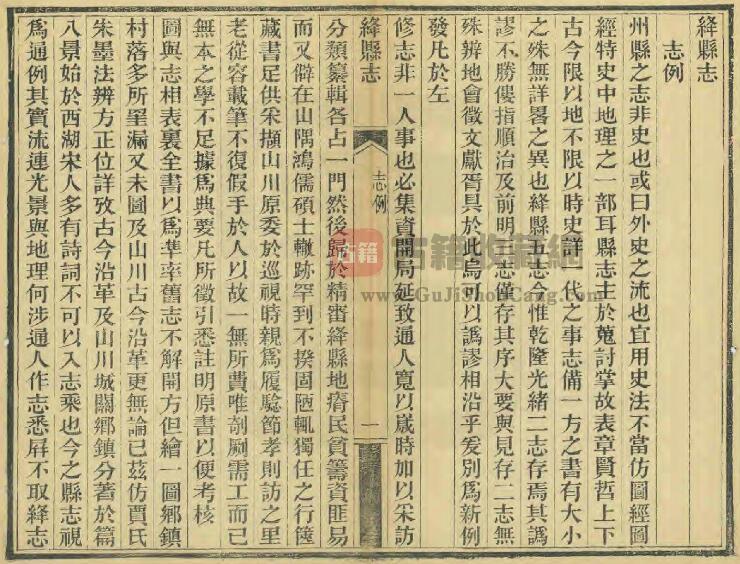 絳縣志
志例
州縣之志非史也或曰外史之流也宜用史法不當仿圖經圖
經特史中地理之一部耳縣志主於蒐討掌故表章賢哲上下
古今限以地不限以時史詳一代之事志備一方之書有大小
之殊無詳畧之異也絳縣五志今惟乾隆光緒二志存焉其譌
謬不勝僂指順治及前明三志僅存其序大要與見存二志無
殊辨地會徵文獻胥具於此烏可以譌謬相沿乎爰別爲新例
發凡於左
修志非一人事也必集資開局延致通人寬以歲時加以采訪
絳縣志
志例
一
分類纂輯各占一門然後歸於精審絳縣地瘠民貧籌資匪易
而又僻在山隅鴻儒碩士轍跡罕到不揆固陋輒獨任之行篋
藏書足供采擷山川原委於巡視時親爲履騐節孝則訪之里
老從容載筆不復假手於人以故一無所費唯剞劂需工而已
無本之學不足據爲典要凡所徵引悉註明原書以便考核
圖與志相表裏全書以爲準率舊志不解開方但繪一圖鄉鎮
村落多所罣漏又未圖及山川古今沿革更無論已茲仿賈氏
朱墨法辨方正位詳攷古今沿革及山川城關鄉鎮分著於篇
八景始於西湖宋人多有詩詞不可以入志乘也今之縣志視
爲通例其實流連光景與地理何涉通人作志悉屏不取絳志
古籍
古籍收藏網
www.GuJiShouCang.com